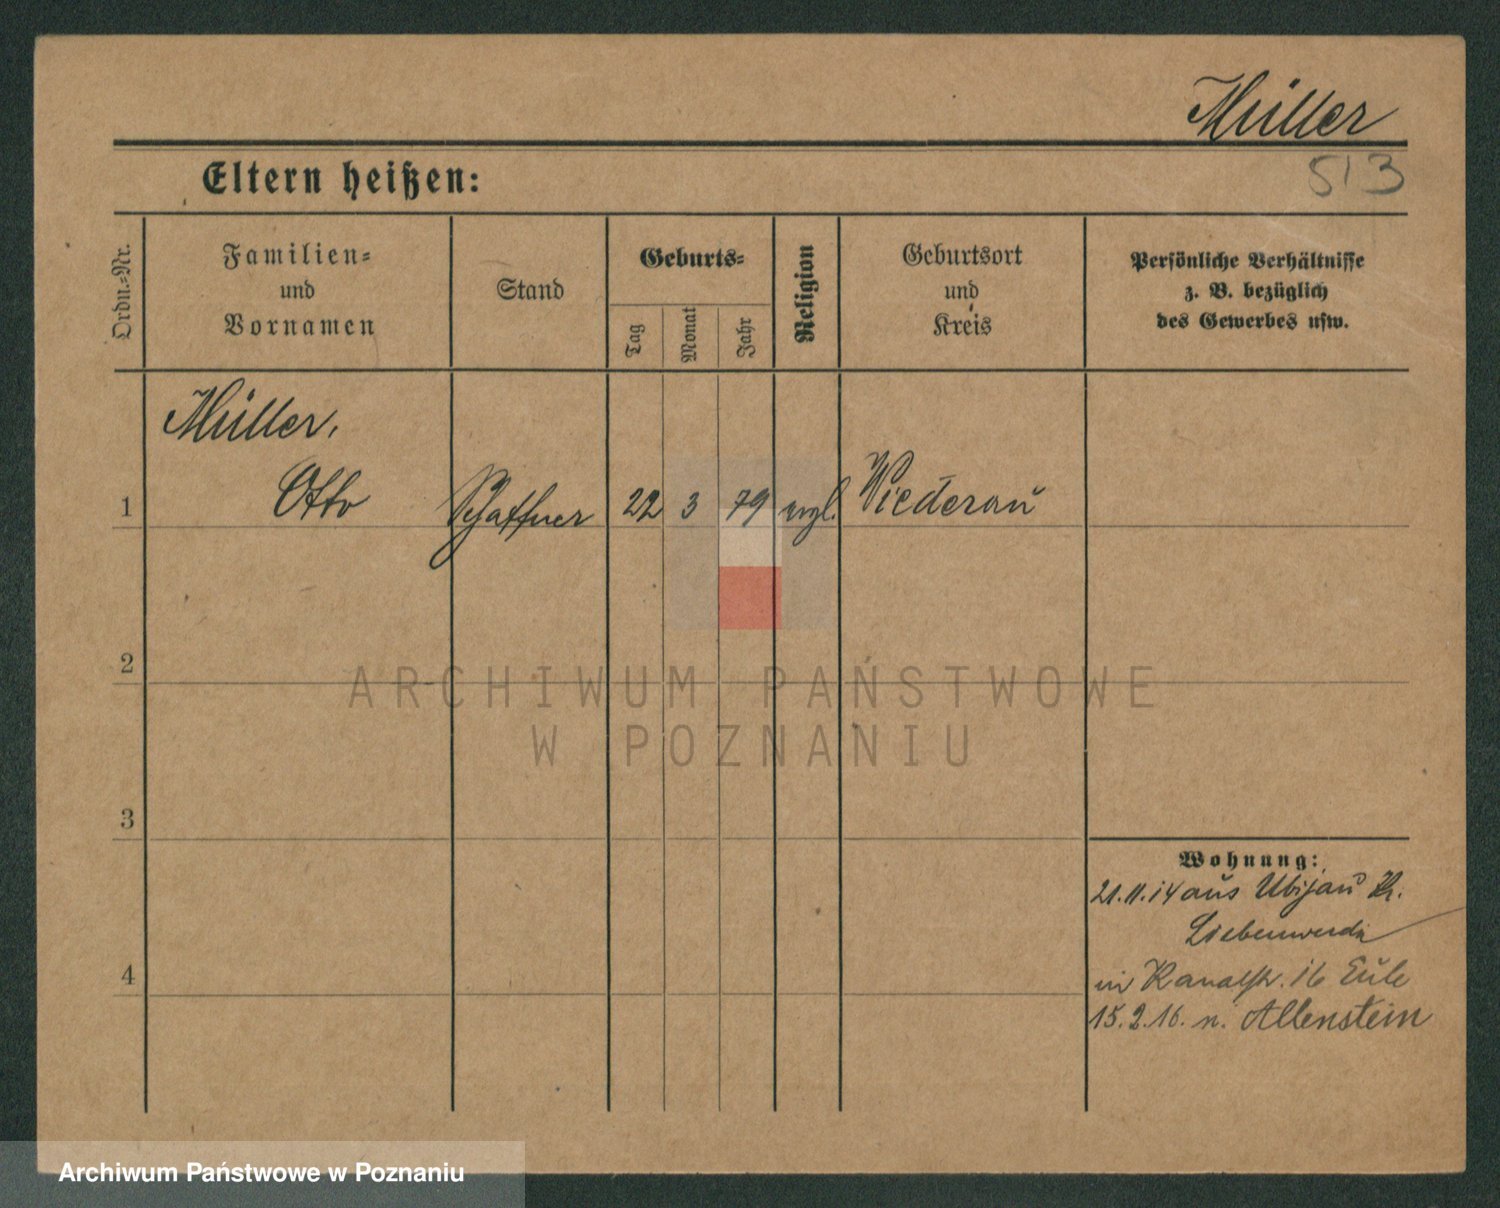 Müller
513
Eltern heißen:
Ordn.-Nr.
Familien-
und
Vornamen
Stand
Geburts-
Tag
Monat
Jahr
Religion
Geburtsort
und
Kreis
Persönliche Verhältnisse
z. B. bezüglich
des Gewerbes usw.
Müller,
1 Otto Schaffner 22 3 79 evgl. Wiederau
2
ARCHIWUM PAŃSTWOWE
W POZNANIU
3
Wohnung:
21.11.14 aus Übijau Kr.
Liebenwerda
in Kanalstr. 16 Eule
4
15.2.16. n. Allenstein
Archiwum Państwowe w Poznaniu